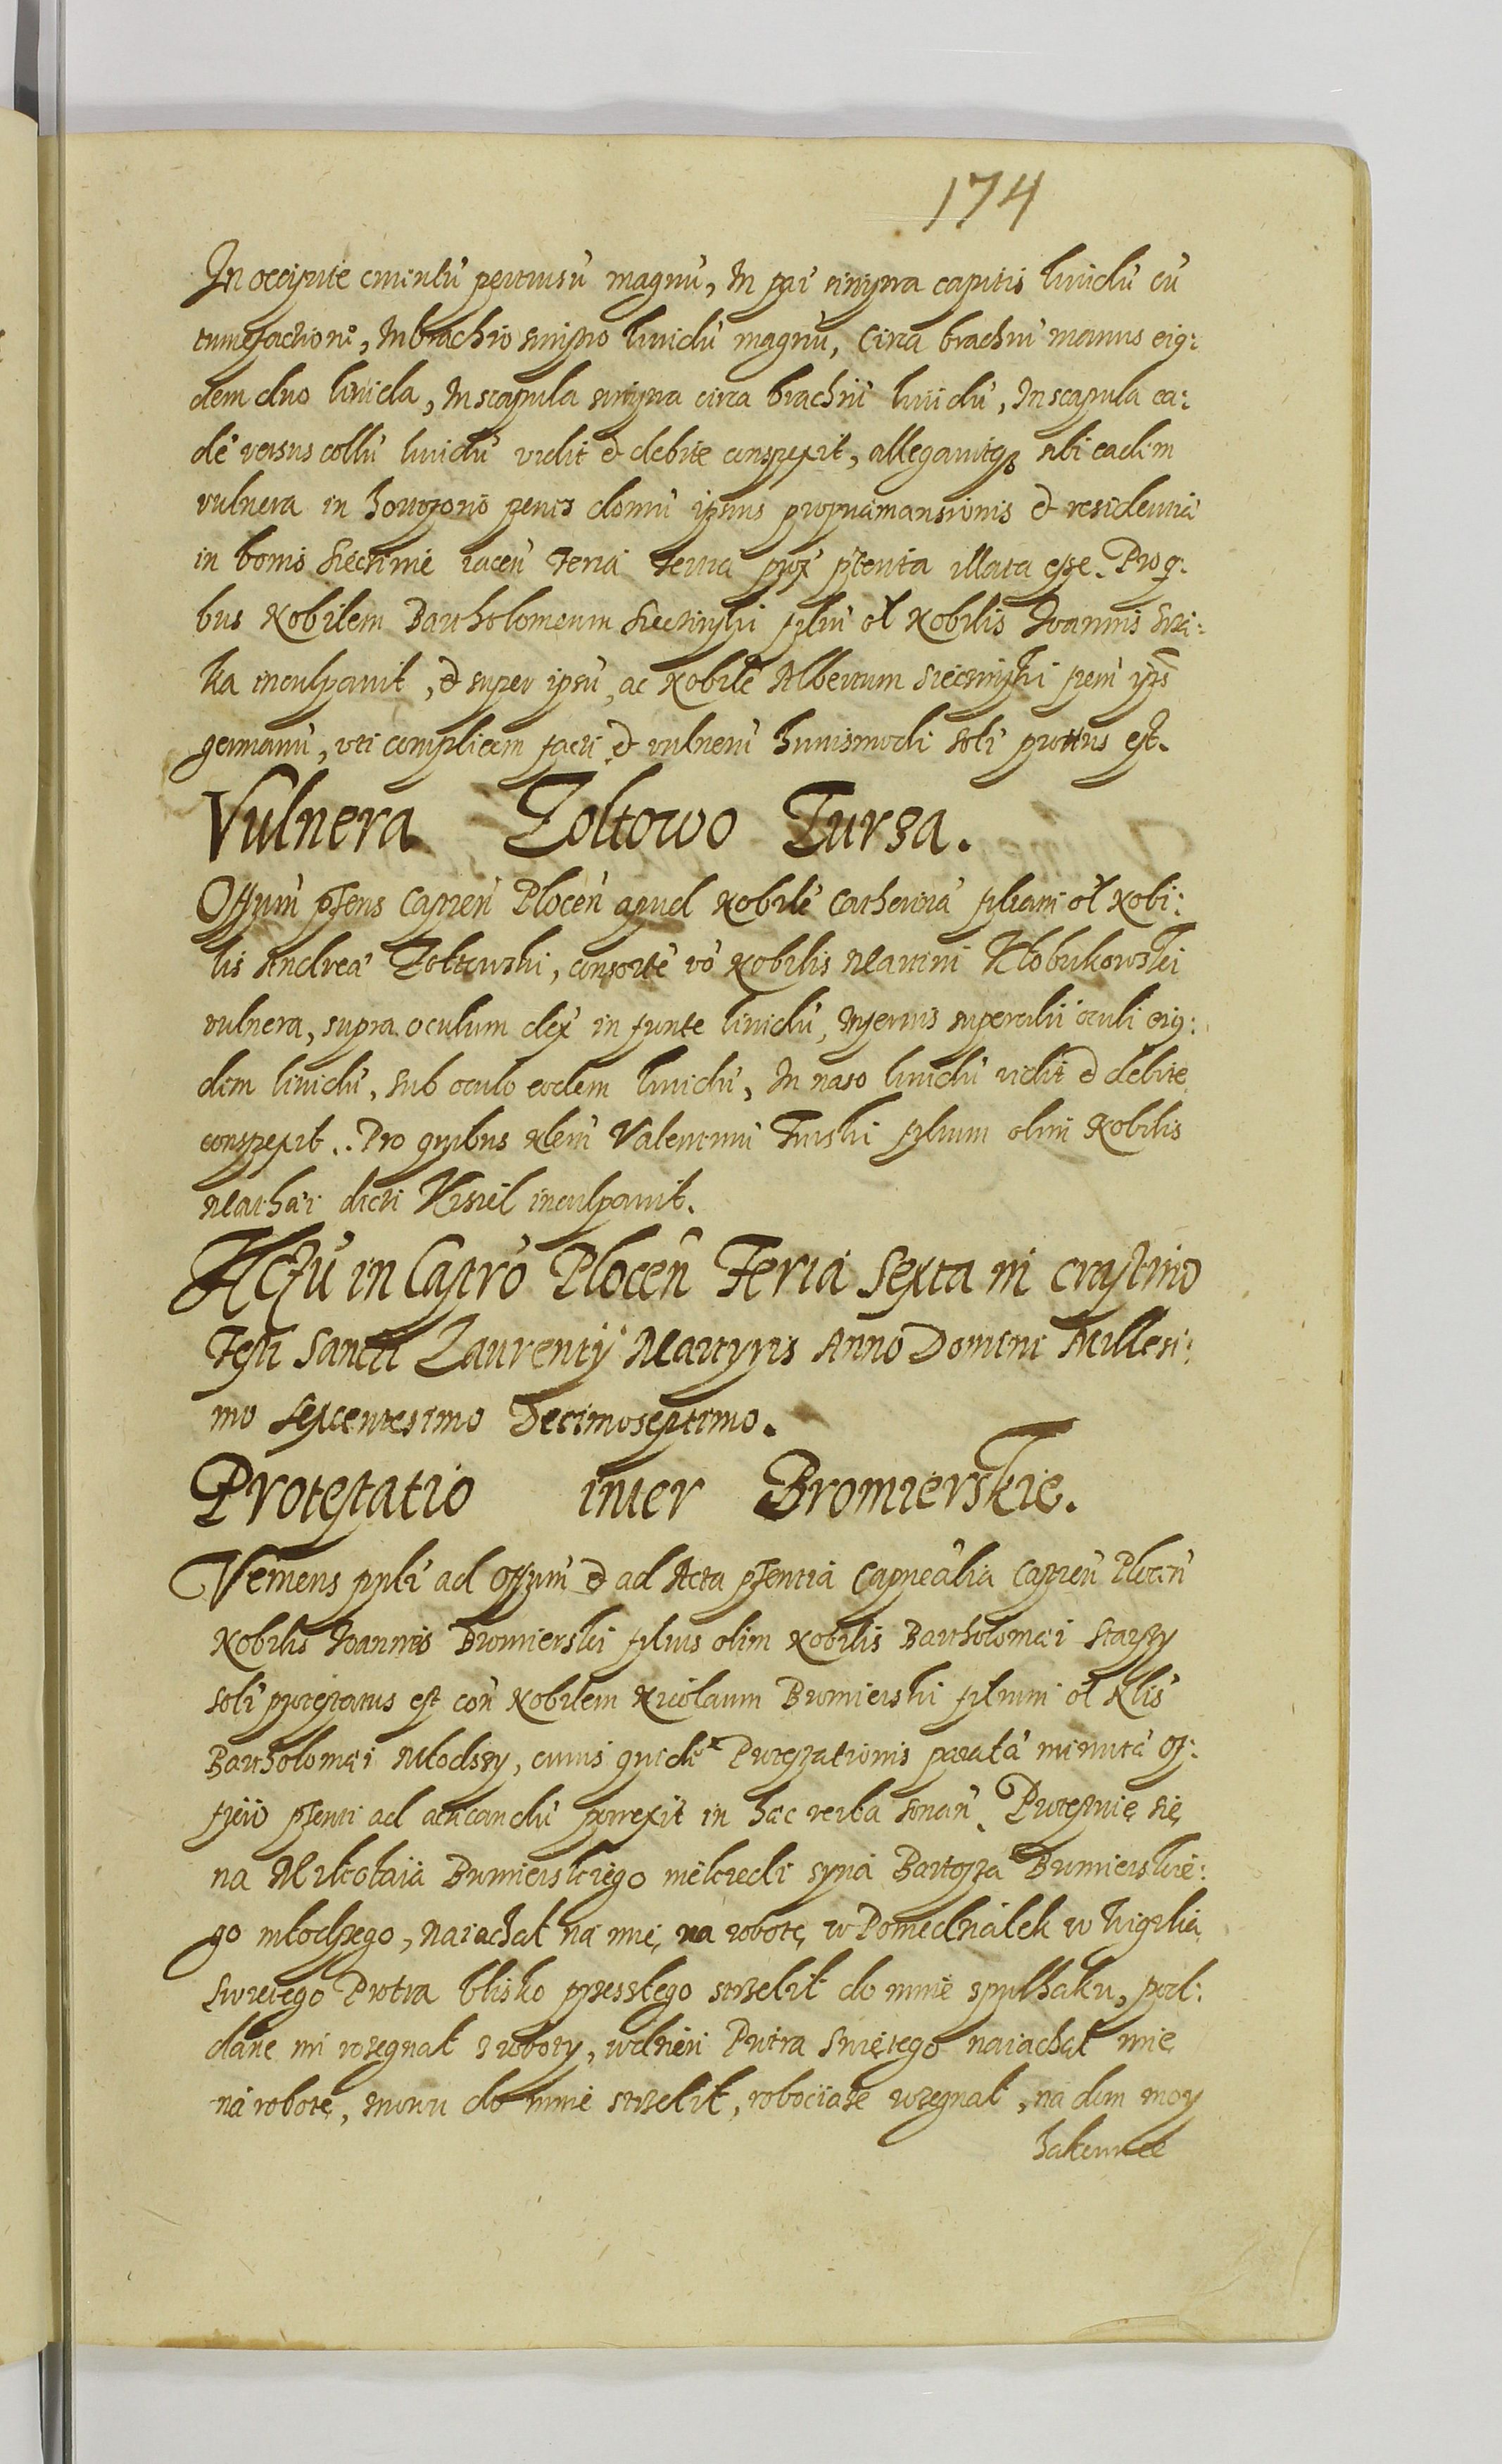 174
In occipite cruentũ pertusũ magnũ, In pte sinistra capitis lividũ cũ
tumefactione, In brachio sinistro lividũ magnũ, Circa brachiũ manus eius:
dem duo livida, In scapula sinistra circa brachiũ lividũ, In scapula ea:
dẽ versus collũ lividũ vidit & debite conspexit, allegavitq3 sibi eadem
vulnera in penes domũ ipsius mansionis & residentiã
in bonis Siecinie iaceñ feria prox̃ pñterita illata esse. Pro q:
bus Nobilem Bartholomeum Siecinski filiũ ol̃ Nobilis Joannis
ka inculpavit, & super ipsũ, ac Nobilẽ Albertum Siecinski frem̃ ips̃
germanũ, uti complicem facti & vulnerũ huiusmodi soli prottus est.
Vulnera Zoltowo Tursa.
Offium̃ pñsens Capteñ Ploceñ apud Nobilẽ Catherinã filiam ol̃ Nobi:
lis Andreã Zoltowski, consortẽ võ Nobilis Martini Klobukowski
vulnera, supra oculum dex̃ in fronte lividũ, supercilii oculi eius:
dem lividũ, sub oculo eodem lividũ, In naso lividũ vidit & debite
conspexit. Pro quibus Nlem̃ Valentinũ Turski filium olim Nobilis
Mathæi dicti Kisiel inculpavit.
Actũ in Castrõ Ploceñ Feria Sexta in crastino
Festi Sancti Laurentij Martyris Anno Domini Millesi:
mo Sexcentesimo Decimoseptimo.
Protestatio inter Bromierskie.
Veniens psnlr̃ ad Offium̃ & ad Acta pñsentia Capnealia Capteñ Ploceñ
Nobilis Joannes Bromierski filius olim Nobilis Bartholomæi Starszy
soli protestatus est coñ Nobilem Nicolaum Bromierski filium ol̃ Nlis
Bartholomæi Młodszy, cuius quidẽ Protestationis paratã minutã of:
ficio pñsenti ad acticandũ porrexit in hæc verba sonañ. Protestuię się
na Mikołaia Bromierskiego niekiedi syna Bartosza Bromierskie:
go młodszego, naiachał na mię na robotę w Poniedziałek w Wigilią
Swiętego Piotra blisko przesszłego strzelił do mnie spulhaku, pod:
dane mi rozegnał z roboty, w dzien Piotra Swiętego naiachał mię
na robotę, znowu do mnie strzelił, robociaze rozegnał, na dom moy